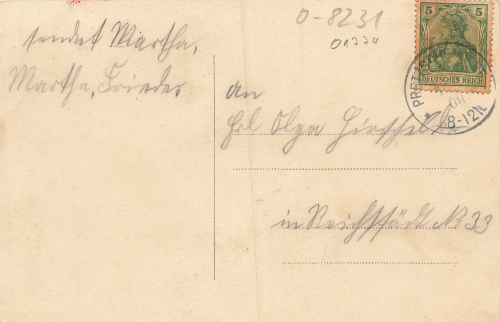 sendet Martha,
Martha, Frieder
0-8231
01774
5 5
DEUTSCHES REICH
PRET
09
8-12N
an
Frl Olga
in Reichstädt No 33